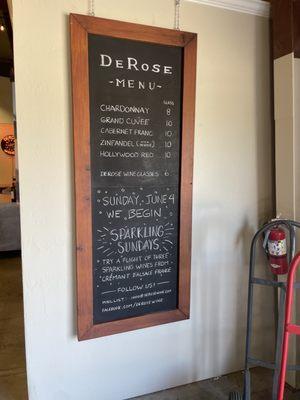 DeRose
-MENU-
GLASS
CHARDONNAY 8
GRAND CUVÉE 10
CABERNET FRANC 10
ZINFANDEL 10
HOLLYWOOD RED 10
DEROSE WINE GLASSES 6
SUNDAY, JUNE 4
WE BEGIN
SPARKLING
SUNDAYS
TRY A FLIGHT OF THREE
SPARKLING WINES FROM
CRÉMANT D'ALSACE FRANCE
FOLLOW US!
MAIL LIST:
FACEBOOK.COM/DEROSEWINE